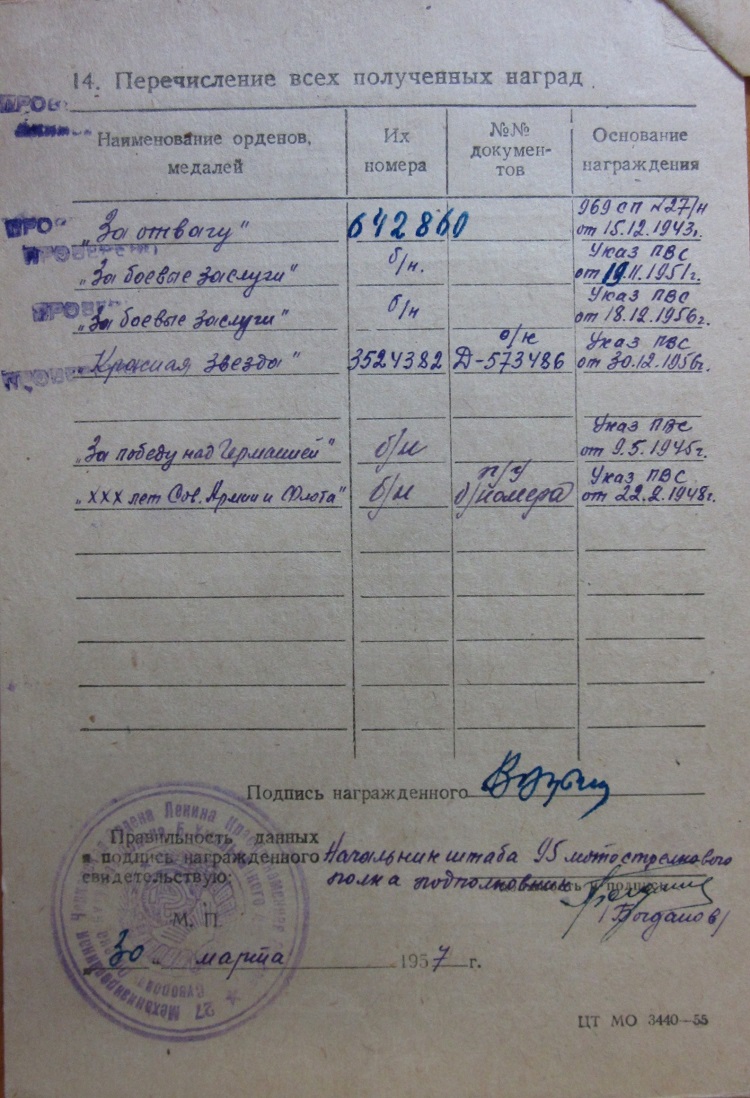 14. Перечисление всех полученных наград
Наименование орденов, медалей
Их номера
№№ докумен-тов
Основание награждения
969 СП №27/н
„За отвагу" 642860 от 15.12.1943г.
ПРОВЕРЕНО
Указ ПВС
„За боевые заслуги" б/н. от 19.11.1951г.
Указ ПВС
„За боевые заслуги" б/н от 18.12.1956г.
о/к Указ ПВС
„Красная звезда" 3524382 Д-573486 от 30.12.1956г.
Указ ПВС
„За победу над Германией" б/н от 9.5.1945г.
п/у Указ ПВС
„XXX лет Сов. Армии и Флота" б/н б/номера от 22.2.1948г.
Подпись награжденного
Правильность данных
и подпись награжденного Начальник штаба 95 мотострелкового
свидетельствую: полка подполковник
(Богданов)
М. П.
30 „ марта 1957 г.
ЦТ МО 3440—55